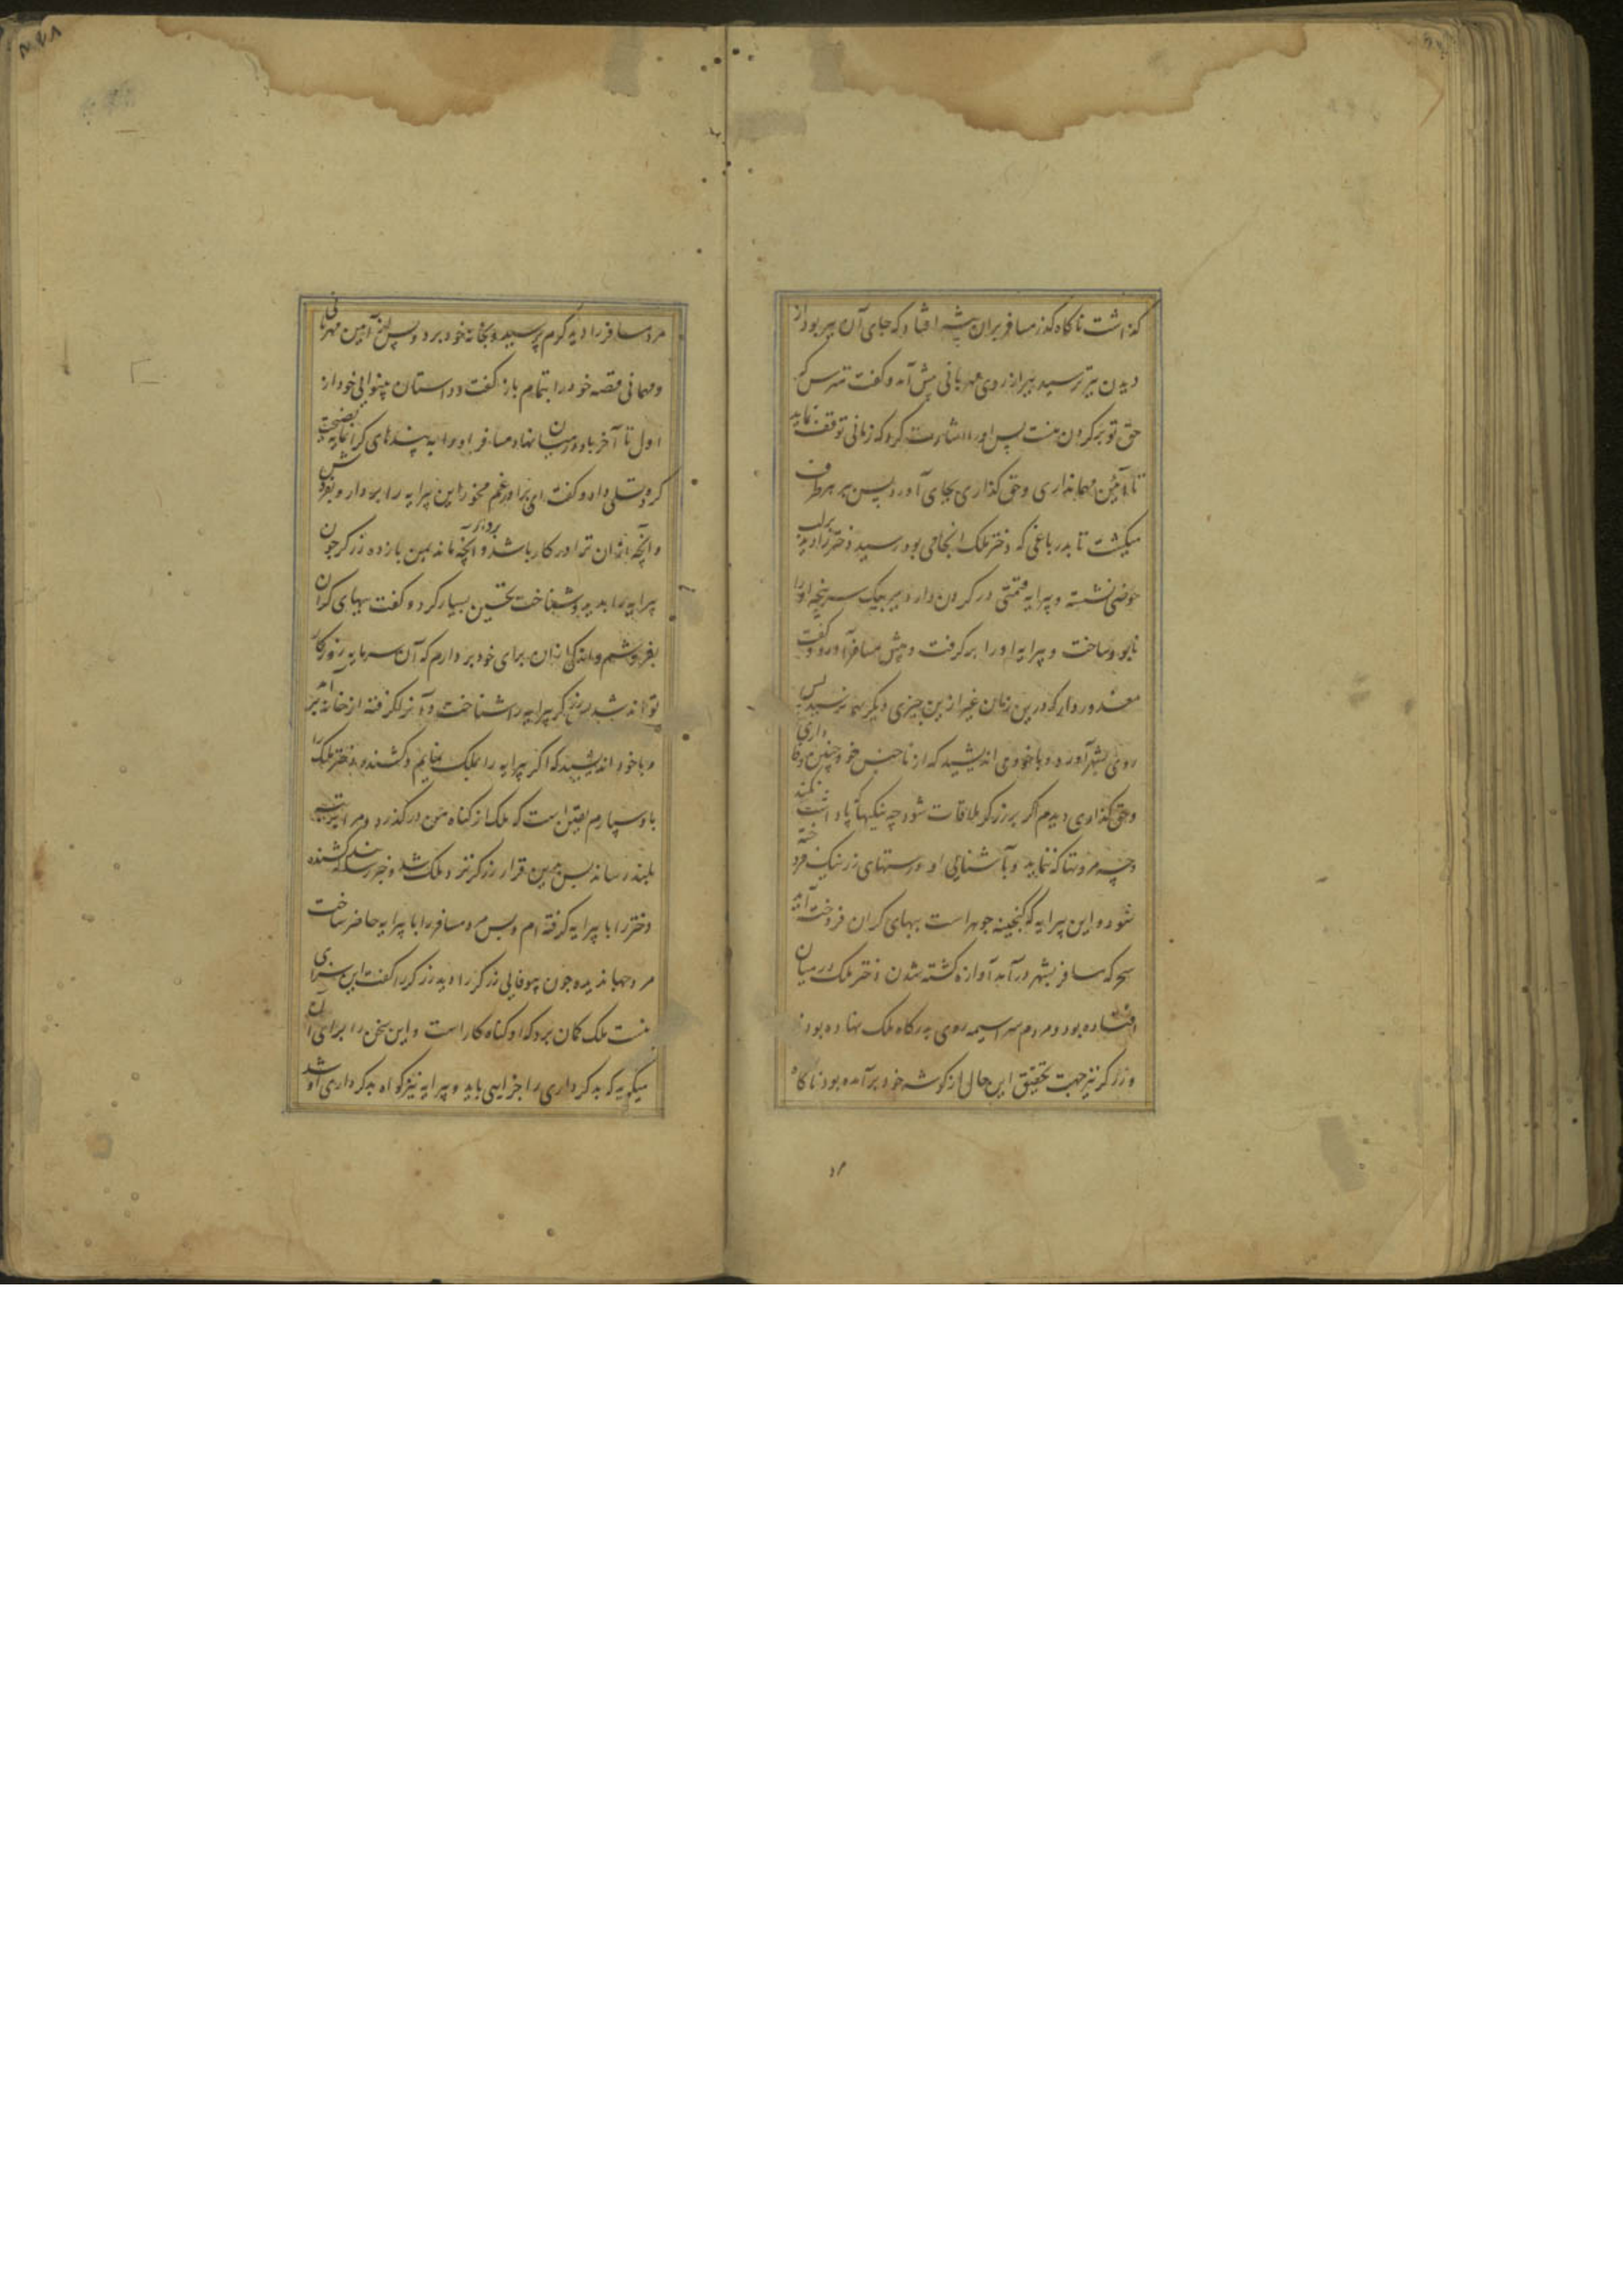 کذاشت ناکاه کذر مسافر بران بیشه افتاد که جای آن ببر بود از
دیدن ببر ترسید ببر از روی مهربانی پیش آمد و کفت مترس که
حق تو بر کردن منست پس او را اشارت کرد که زمانی توقف نماید
تا آئین مهمانداری و حق کذاری بجای آورد پس بر هر طرف
میکشت تا بدر باغی که دختر ملک انجا می بود رسید دختر را دید بر لب
حوضی نشسته و پیرایه قیمتی در کردن دارد ببر بیک سرپنجه او را
نابود ساخت و پیرایه او را بر کرفت و پیش مسافر آورد و کفت
معذور دار که درین زمان غیر ازین چیزی دیکر بهم نرسید پس
روی بشهر آورد و با خود می اندیشید که از ناجنس خو چنین وفاداری
و حق کذاری دیدم اکر بر زرکر ملاقات شود چه نیکیها که
و چه مروتها که نماید و بآشنایی او
شود و این پیرایه که کنجینه جوهر است ببهای کران فروخته آید
سحر که مسافر بشهر در آمد آوازه کشته شدن دختر ملک در میان
افتاده بود و مردم سراسیمه روی بدرکاه ملک نهاده بودند
و زرکر نیز جهت تحقیق این حال از کوشه خود بر آمده بود ناکاه
مرد مسافر را دید کرم پرسید و بخانه خود برد و پس از آیین مهربانی
و مهمانی قصه خود را بتمام باز کفت و داستان بینوایی خود از
اول تا آخر باو در میان نهاد مسافر او را به پندهای کرانمایه نصیحت
کرد و تسلی داد و کفت ای برادر غم مخور این پیرایه را بردار و بفروش
و آنچه از آن ترا در کار باشد بردار و آنچه بماند بمن باز ده زرکر چون
پیرایه را بدید و شناخت تحسین بسیار کرد و کفت ببهای کران
بفروشم و اندکی از آن برای خود بر دارم که آن سرمایه روزکار
تواند شد زرکر پیرایه را شناخت و آنرا کرفته از خانه بر آمد
و با خود اندیشید که اکر پیرایه را بملک نمایم و کشنده دختر ملک را
باو سپارم یقین است که ملک از کناه من در کذرد و مرا بمرتبه
بلند رساند پس بهمین قرار زرکر نزد ملک شد و خبر رساند که کشنده
دختر را با پیرایه کرفته ام و پس مرد مسافر را با پیرایه حاضر ساخت
مرد جهاندیده چون بیوفایی زرکر را دید زرکر را کفت این سزای
منست ملک کمان برد که او کناه کار است و این سخن را برای آن
میکوید که بد کرداری را جزایی باید و پیرایه نیز کواه بد کرداری او شد